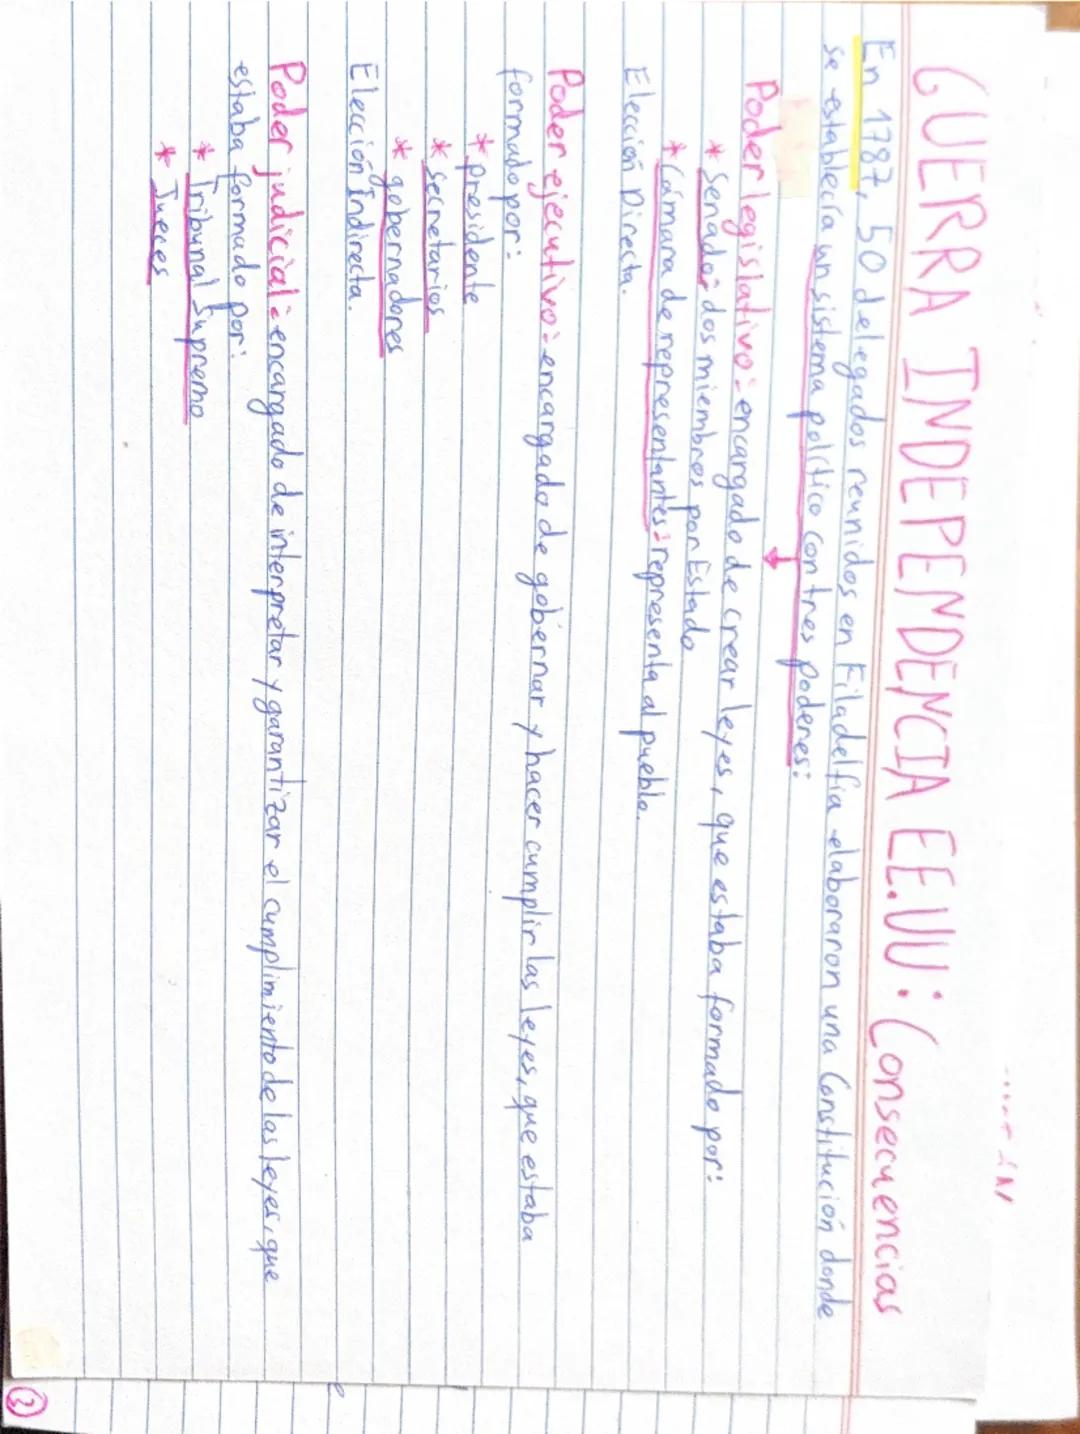 GUERRA INDEPENDENCIA EE.UU: Consecuencias
En 1787, 50 delegados reunidos en Filadelfia elaboraron una Constitución donde
se establecía un sistema político con tres poderes:
Poder legislativo: encargado de crear leyes, que estaba formado por:
* Senado: dos miembros por Estado
* Cámara de representantes: representa al pueblo.
Elección Directa.
Poder ejecutivo: encargado de gobernar y hacer cumplir las leyes, que estaba
formado por:
* presidente
* secretarios
* gobernadores
Elección Indirecta.
Poder judicial: encargado de interpretar y garantizar el cumplimiento de las leyes, que
estaba formado por:
* Tribunal Supremo
* Jueces
2